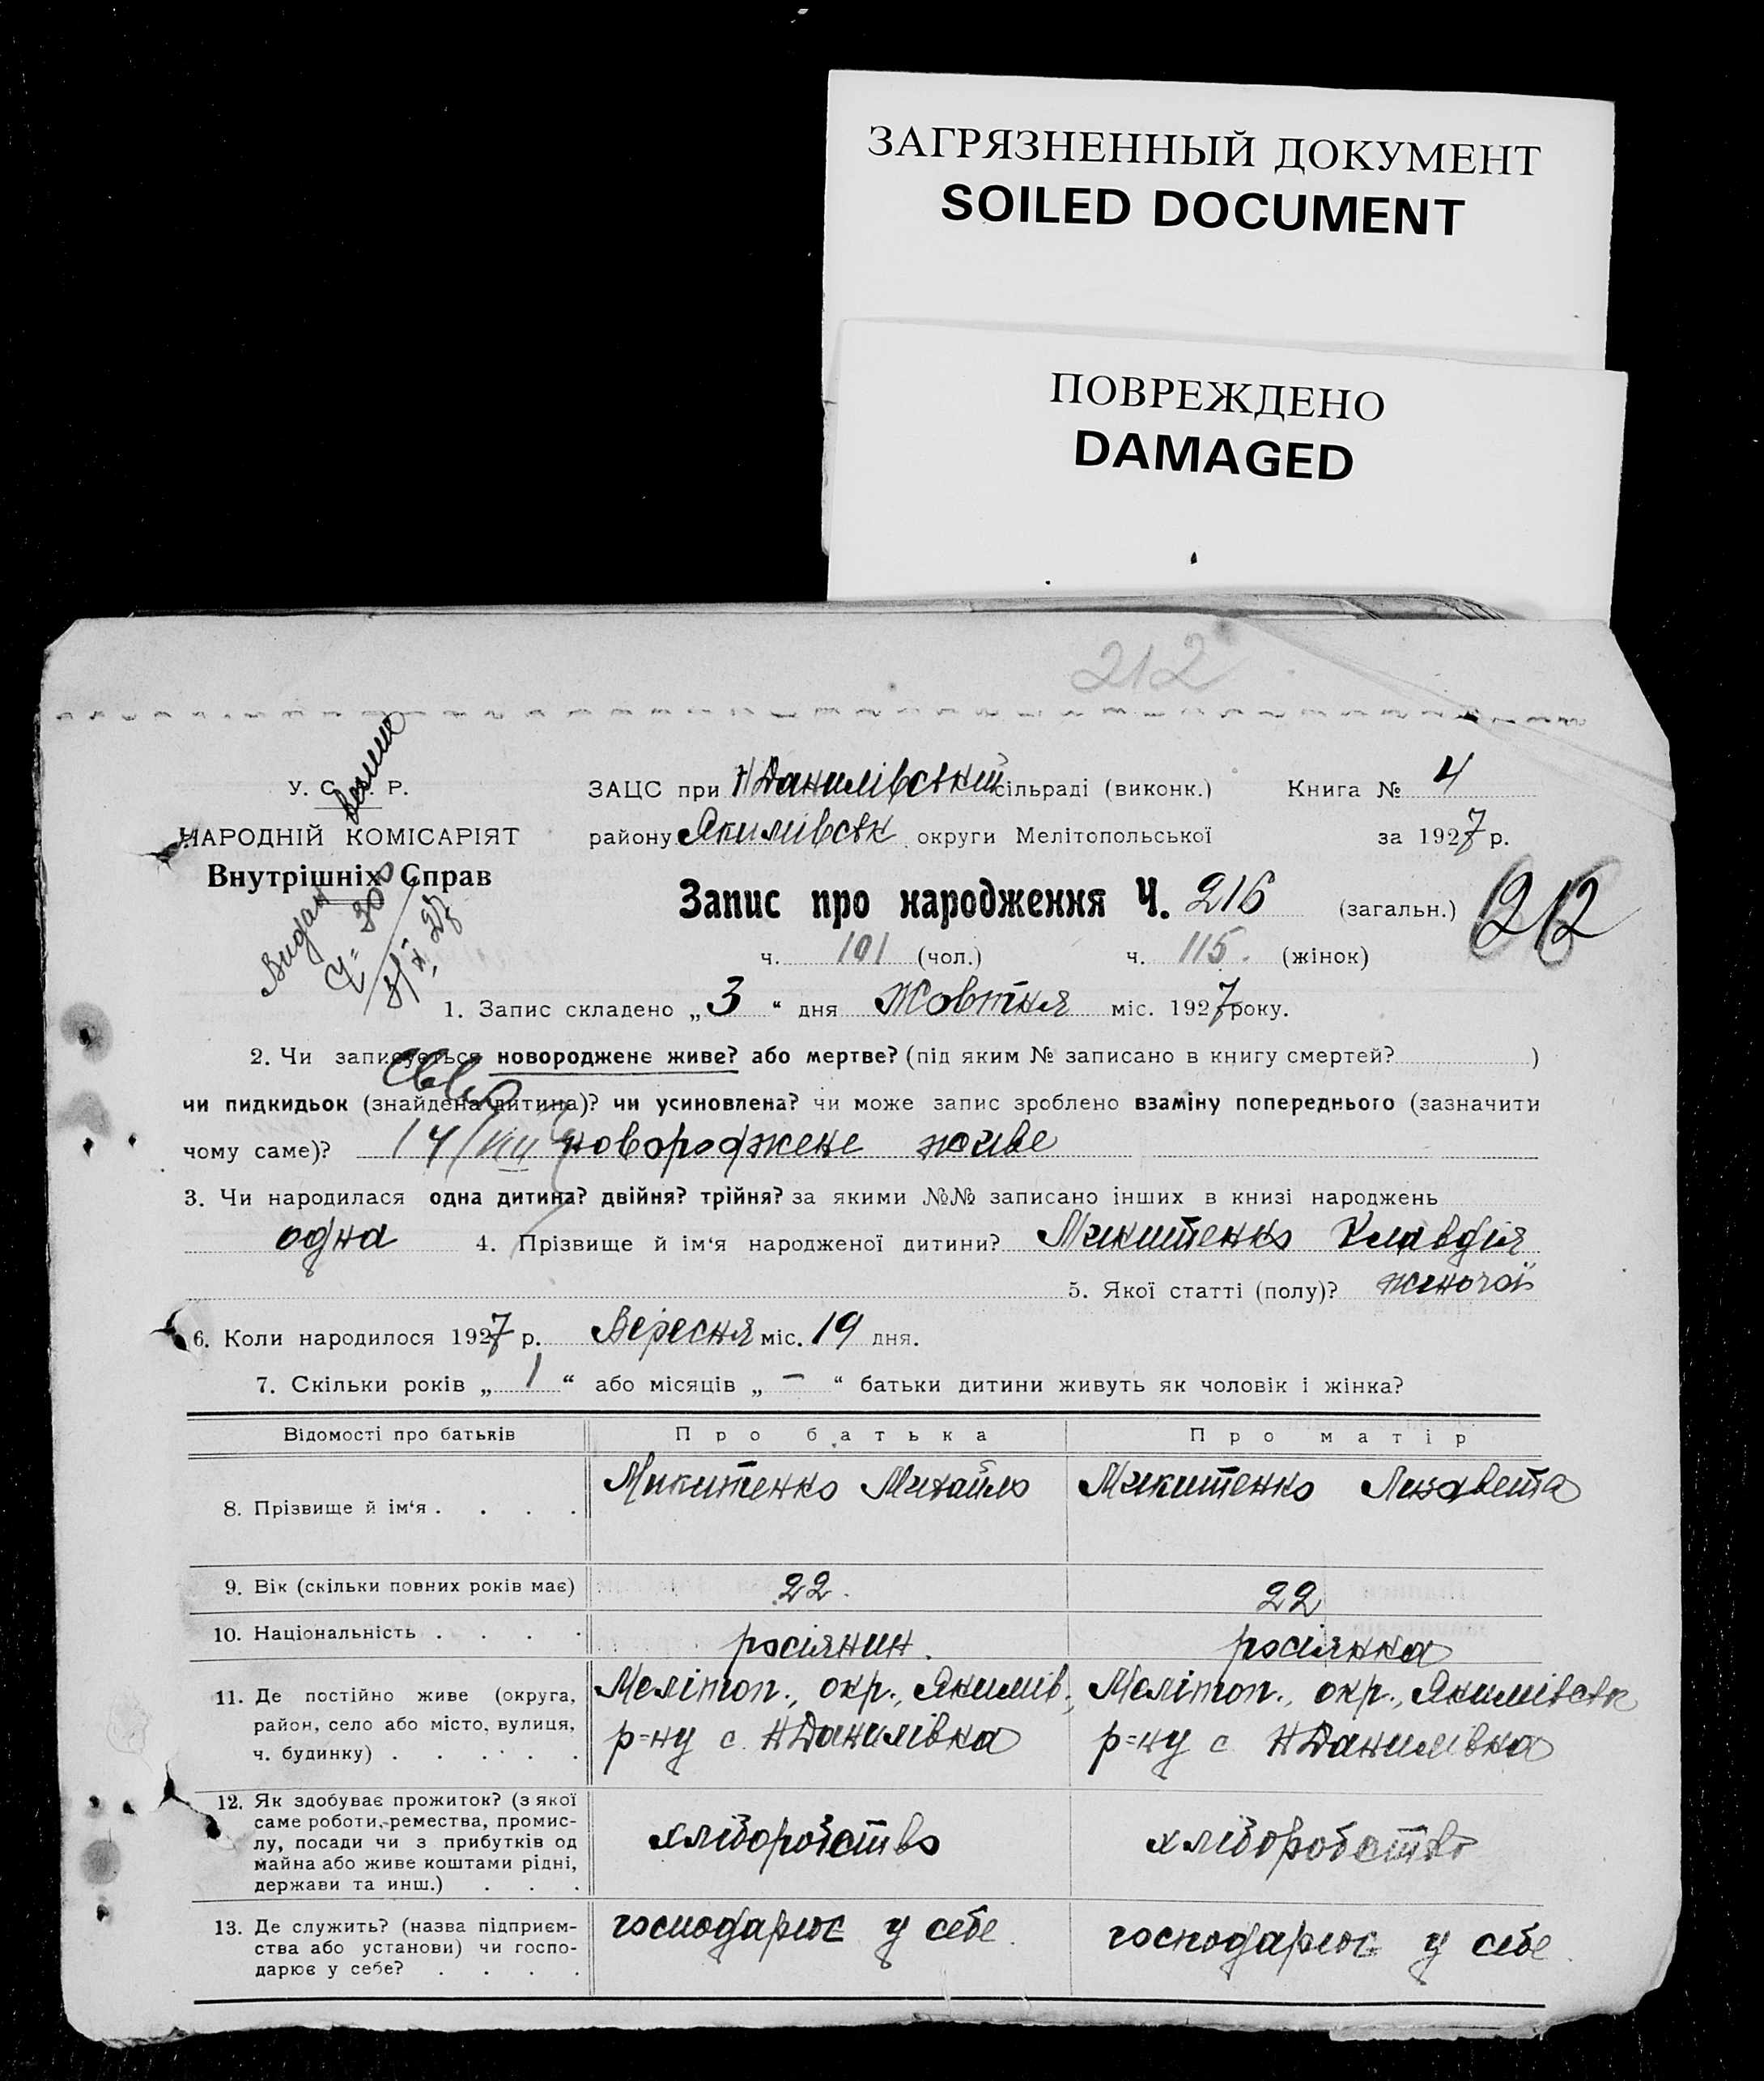 ЗАГРЯЗНЕННЫЙ ДОКУМЕНТ
SOILED DOCUMENT
ПОВРЕЖДЕНО
DAMAGED
212
У. С. Р.
НАРОДНІЙ КОМІСАРІЯТ
Внутрішніх Справ
ЗАЦС при Н Данилівський сільраді (виконк.) Книга № 4
району Якимівськ округи Мелітопольської за 1927 р.
Запис про народження Ч. 216 (загальн.) 212
ч. 101 (чол.) ч. 115. (жінок)
Видан
ч. 30
3/X 27
1. Запис складено „3“ дня Жовтня міс. 1927 року.
2. Чи записується новороджене живе? або мертве? (під яким № записано в книгу смертей? )
чи пидкидьок (знайдена дитина)? чи усиновлена? чи може запис зроблено взаміну попереднього (зазначити
чому саме)? 14/VIII новороджене живе
3. Чи народилася одна дитина? двійня? трійня? за якими №№ записано інших в книзі народжень
одна 4. Прізвище й ім‘я народженої дитини? Микитенко Клавдія
5. Якої статті (полу)? жіночої
6. Коли народилося 1927 р. Вересня міс. 19 дня.
7. Скільки років „ 1 “ або місяців „ — “ батьки дитини живуть як чоловік і жінка?
Відомості про батьків Про батька Про матір
8. Прізвище й ім‘я . . . . Микитенко Михайло Микитенко Лизавета
9. Вік (скільки повних років має) 22. 22
10. Національність . . . . росіянин. росіянка
11. Де постійно живе (округа, Меліттоп., окр., Якимів., Мелітоп., окр., Якимівськ
район, село або місто, вулиця, р=ну с. Н Данилівка р=ну с Н Данилівка
ч. будинку) . . . . .
12. Як здобуває прожиток? (з якої
саме роботи, ремества, промис-
лу, посади чи з прибутків од хліборобство хліборобство
майна або живе коштами рідні,
держави та инш.) . . .
13. Де служить? (назва підприєм- господарює у себе. господарює у себе.
ства або установи) чи госпо-
дарює у себе? . . . .